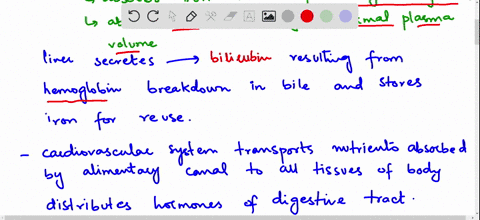 mal plasma
volume
liver secretes → bilirubin resulting from
hemoglobin breakdown in bile and stores
iron for reuse.
- cardiovascular system transports nutrients absorbed
by alimentary canal to all tissues of body
distributes hormones of digestive tract.